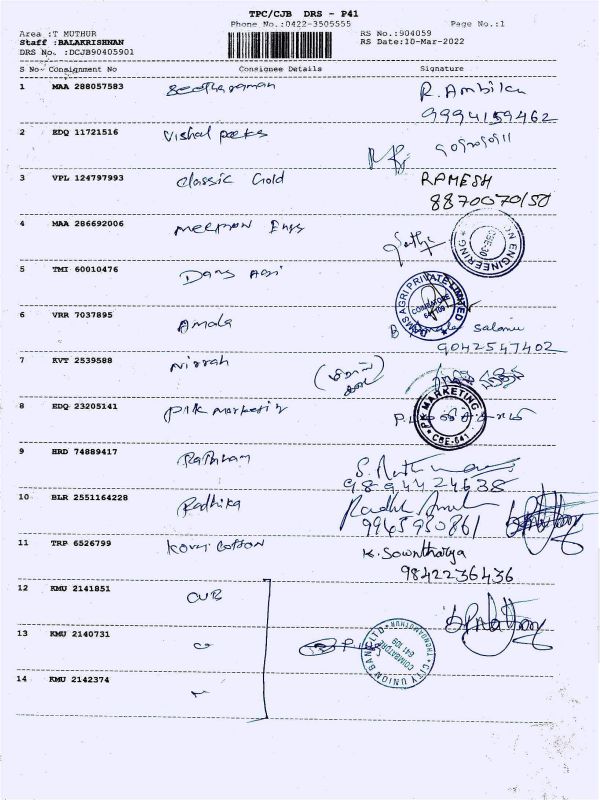 TPC/CJB DRS - P41
Phone No.:0422-3505555
Page No.:1
Area :T MUTHUR
RS No.:904059
Staff :BALAKRISHNAN
RS Date:10-Mar-2022
DRS No. :DCJB90405901
S No Consignment No Consignee Details Signature
1 MAA 288057583 Seetharaman R. Ambika
9994159462
2 EDQ 11721516 Vishal
3 VPL 124797993 Classic Gold RAMESH
8870070150
4 MAA 286692006 Engg
ENGINEERING
CBE-30
5 TMI 60010476 Dams Agri
DAMS AGRI PRIVATE LIMITED
COIMBATORE
641 109
6 VRR 7037895 Amala
9042547402
7 KVT 2539588
8 EDQ 23205141 PJK Marketing
MARKETING
CBE-641
9 HRD 74889417 Rathnam
9894424638
10 BLR 2551164228 Radhika
11 TRP 6526799 Kovai Cotton K. Sowntharya
9842236436
12 KMU 2141851 CUB
13 KMU 2140731
CITY UNION BANK LTD
COIMBATORE
641 109
14 KMU 2142374